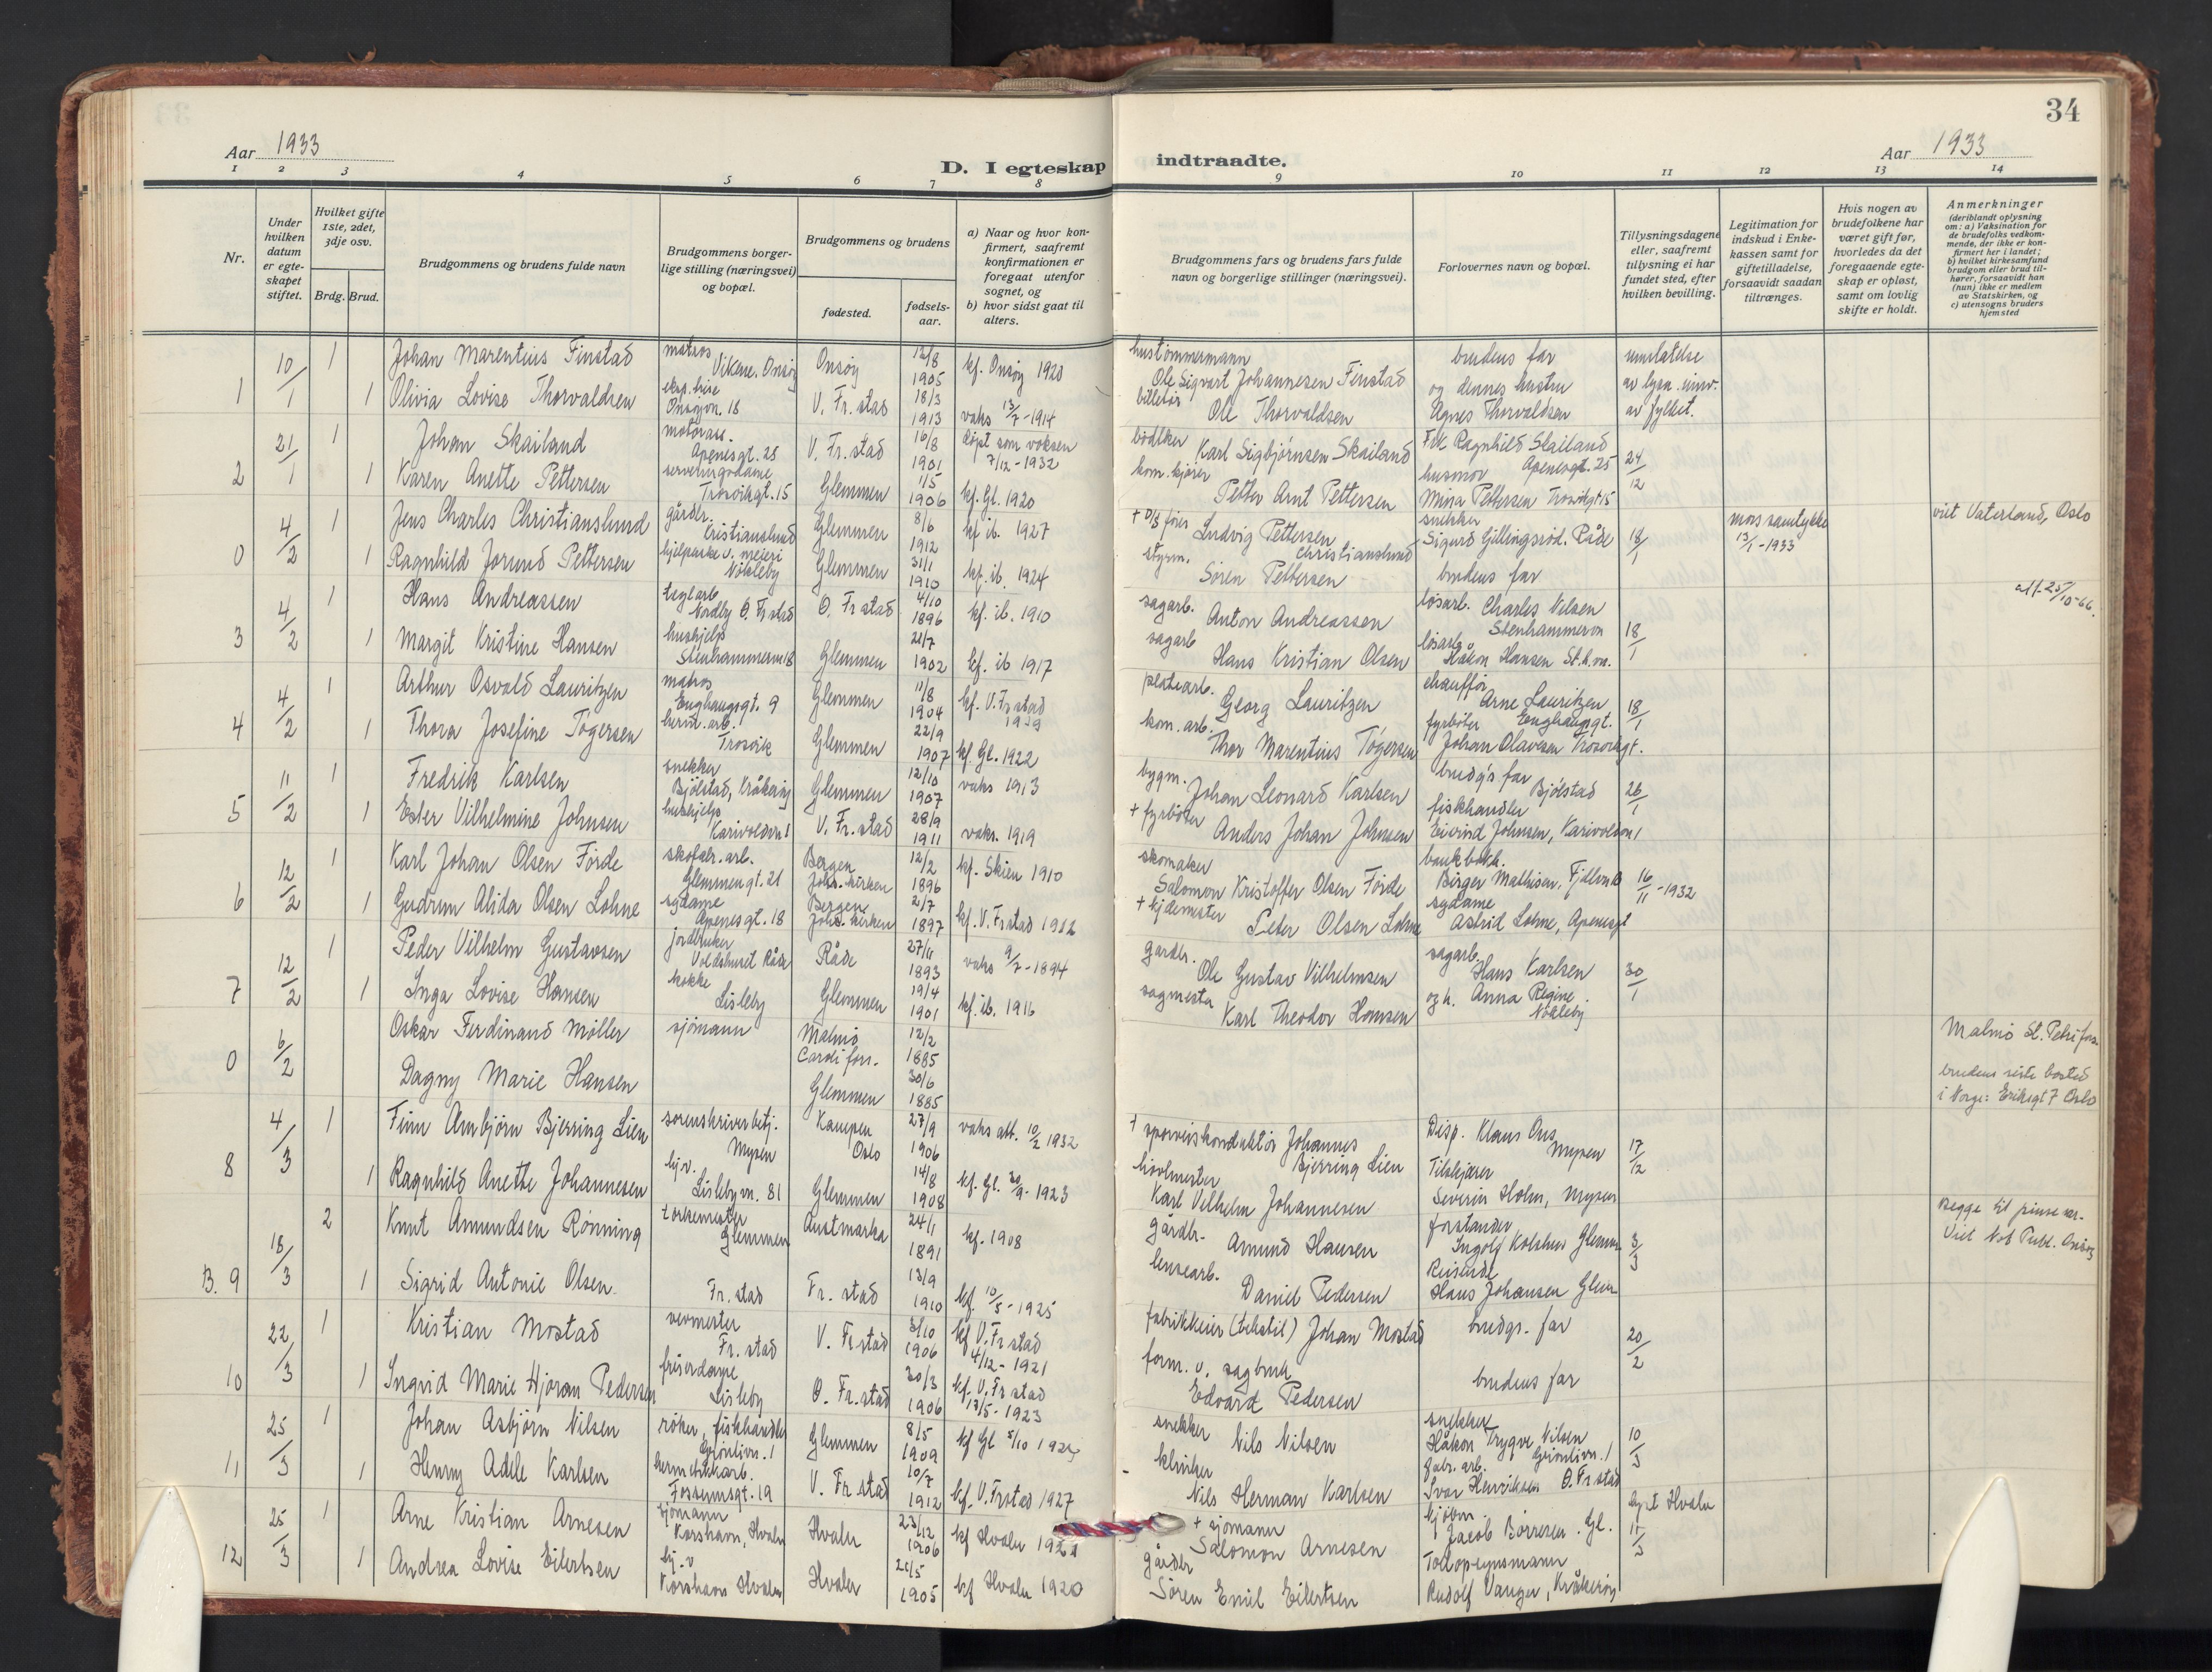 34
Aar 1933
D. I egteskap indtraadte.
Aar 1933
1 2 3 4 5 6 7 8 9 10 11 12 13 14
Nr.
Under hvilken datum er egteskapet stiftet.
Hvilket gifte 1ste, 2det, 3dje osv.
Brdg. Brud.
Brudgommens og brudens fulde navn
Brudgommens borgerlige stilling (næringsvei) og bopæl.
Brudgommens og brudens
fødested.
fødselsaar.
a) Naar og hvor konfirmert, saafremt konfirmationen er foregaat utenfor sognet, og
b) hvor sidst gaat til alters.
Brudgommens fars og brudens fars fulde navn og borgerlige stillinger (næringsvei).
Forlovernes navn og bopæl.
Tillysningsdagene eller, saafremt tillysning ei har fundet sted, efter hvilken bevilling.
Legitimation for indskud i Enkekassen samt for giftetilladelse, forsaavidt saadan tiltrænges.
Hvis nogen av brudefolkene har været gift før, hvorledes da det foregaaende egteskap er opløst, samt om lovlig skifte er holdt.
Anmerkninger
(deriblandt oplysning om: a) Vaksination for de brudefolks vedkommende, der ikke er konfirmert her i landet; b) hvilket kirkesamfund brudgom eller brud tilhører, forsaavidt han (hun) ikke er medlem av Statskirken, og c) utensogns bruders hjemsted
1 10/1 1 Johan Marentius Finstad matros Vikene. Onsøy Onsøy 12/8 1905 kf. Onsøy 1920 hustømmermann Ole Sigvart Johannesen Finstad brudens far
1 Olivia Lovise Thorvaldsen Onsøyvn. 18 V. Fr.stad 18/3 1913 vaks 13/7-1914 billetør Ole Thorvaldsen og dennes hustru Agnes Thorvaldsen av fylket.
2 21/1 1 Johan Skailand Apenesgt. 25 V. Fr.stad 16/8 1901 døpt som voksen 7/12-1932 bødtker Karl Sigbjørnsen Skailand Frk Ragnhild Skailand Apenesgt. 25 24/12
1 Karen Anette Pettersen serveringsdame Trosvikgt. 15 Glemmen 1/5 1906 kf. Gl. 1920 kom. kjører Petter Arnt Pettersen husmor Mina Pettersen Trosvikgt 15
0 4/2 1 Jens Charles Christianslund gårdbr. Kristianslund Glemmen 8/6 1912 kf ib. 1927 Ludvig Pettersen Christianslund snekker Sigurd Gillingsrød. Råde 18/1 mors samtykke 13/1-1933 viet Vaterland, Oslo
1 Ragnhild Jorund Pettersen Nøkleby Glemmen 31/1 1910 kf. ib. 1924 styrm. Søren Pettersen brudens far
3 4/2 1 Hans Andreassen teglarb Nordby Ø. Fr stad Ø. Fr stad 4/10 1896 kf. ib. 1910 sagarb. Anton Andreassen løsarb. Charles Nilsen Stenhammeren 18/1 att. 25/10-66.
1 Margit Kristine Hansen hushjelp Stenhammeren 18 Glemmen 21/7 1902 kf. ib 1917 sagarb Hans Kristian Olsen løsarb. Håkon Hansen St.h.vn.
4 4/2 1 Arthur Osvald Lauritzen matros Enghaugsgt. 9 Glemmen 11/8 1904 kf. V. Fr stad platearb. Georg Lauritzen chauffør Arne Lauritzen Enghaugsgt. 18/1
1 Thora Josefine Tøgersen herm. arb. Trosvik Glemmen 22/9 1907 kf. Gl. 1922 kom. arb. Thor Marentius Tøgersen fyrbøter Johan Olavesen Trosvikgt.
5 11/2 1 Fredrik Karlsen snekker Bjølstad, Kråkerøy Glemmen 12/10 1907 vaks 1913 bygm. Johan Leonard Karlsen brudg's far Bjølstad 26/1
1 Ester Vilhelmine Johnsen hushjelp Karivoldvn 1 V. Fr. stad 28/9 1911 vaks. 1919 + fyrbøter Anders Johan Johnsen fiskhandler Eivind Johnsen, Karivoldvn 1
6 12/2 1 Karl Johan Olsen Førde skofabr. arb. Glemmengt. 21 Bergen Joh. kirken 12/2 1896 kf. Skien 1910 skomaker Salomon Kristoffer Olsen Førde bankbokh. Birger Mathisen, 16/11-1932
1 Gudrun Alida Olsen Lohne sydame Apenesgt. 18 Bergen Joh. kirken 2/7 1897 kf. V. Fr stad 1912 Peter Olsen Lohne sydame Astrid Lohne, Apenesgt
7 12/2 1 Peder Vilhelm Gustavsen jordbruker Voldshuset Råde Råde 27/6 1893 vaks 9/7-1894 gardbr. Ole Gustav Vilhelmsen sagarb. Hans Karlsen 30/1
1 Inga Lovise Hansen kokke Lisleby Glemmen 19/4 1901 kf. ib. 1916 sagmester Karl Theodor Hansen og h. Anna Regine. Nøkleby
0 6/2 Oskar Ferdinand Møller sjømann Malmø 12/2 1885 Malmø St. Petri fors.
Dagny Marie Hansen Glemmen 30/6 1885 brudens siste bosted i Norge: Eriksgt 7 Oslo
8 4/3 1 Finn Arnbjørn Bjerring Lien sorenskriverbetj. Mysen Kampen Oslo 27/9 1906 vaks att. 10/2 1932 + sporveiskonduktør Johannes Bjerring Lien Disp. Klaus Ous Mysen 17/12
1 Ragnhild Anette Johannesen hj.v. Lislebyvn. 81 Glemmen 14/8 1908 kf. Gl. 30/9-1923 Karl Vilhelm Johannesen Severin Holm, Mysen
B. 9 18/3 2 Knut Amundsen Rønning tørkemester Glemmen Austmarka 24/1 1891 kf. 1908 gårdbr. Amund Hansen forstander Ingolf Kolshus Glemm 3/3 Begge til pinsevær.
1 Sigrid Antonie Olsen. Fr. stad Fr. stad 13/9 1910 kf. 10/5-1925 lensearb. Daniel Pedersen Reisende Hans Johansen Glem
10 22/3 1 Kristian Mostad vevmester Fr. stad V. Fr stad 3/10 1906 kf V. Fr stad 4/12-1921 fabrikkeier (tekstil) Johan Mostad brudgs. far 20/2
1 Ingrid Marie Hjøran Pedersen friserdame Lisleby Ø. Fr. stad 30/3 1906 kf. V. Fr stad 13/5-1923 form. v. sagbruk Edvard Pedersen brudens far
11 25/3 1 Johan Asbjørn Nilsen røker, fiskhandler Grønlivn. 1 Glemmen 8/5 1909 kf Gl 5/10 snekker Nils Nilsen snekker Håkon Trygve Nilsen Grønlivn. 1 10/3
1 Henny Adele Karlsen hermetikkarb. Fossumsgt. 19 V. Fr stad 10/7 1912 kf. V. Frstad 1927 klinker Nils Herman Karlsen fabr. arb. Ivar Henriksen Ø. Fr stad
12 25/3 1 Arne Kristian Arnesen sjømann Korshavn, Hvaler Hvaler 23/12 1906 kf Hvaler + sjømann Salomon Arnesen kjøbm. Jacob Børresen. Gl. Hvaler 11/3
1 Andrea Lovise Eilertsen hj.v Korshavn Hvaler Hvaler 21/5 1905 kf Hvaler 1920 gårdbr Søren Emil Eilertsen Toldopsynsmann Rudolf Vauger, Kråkerøy